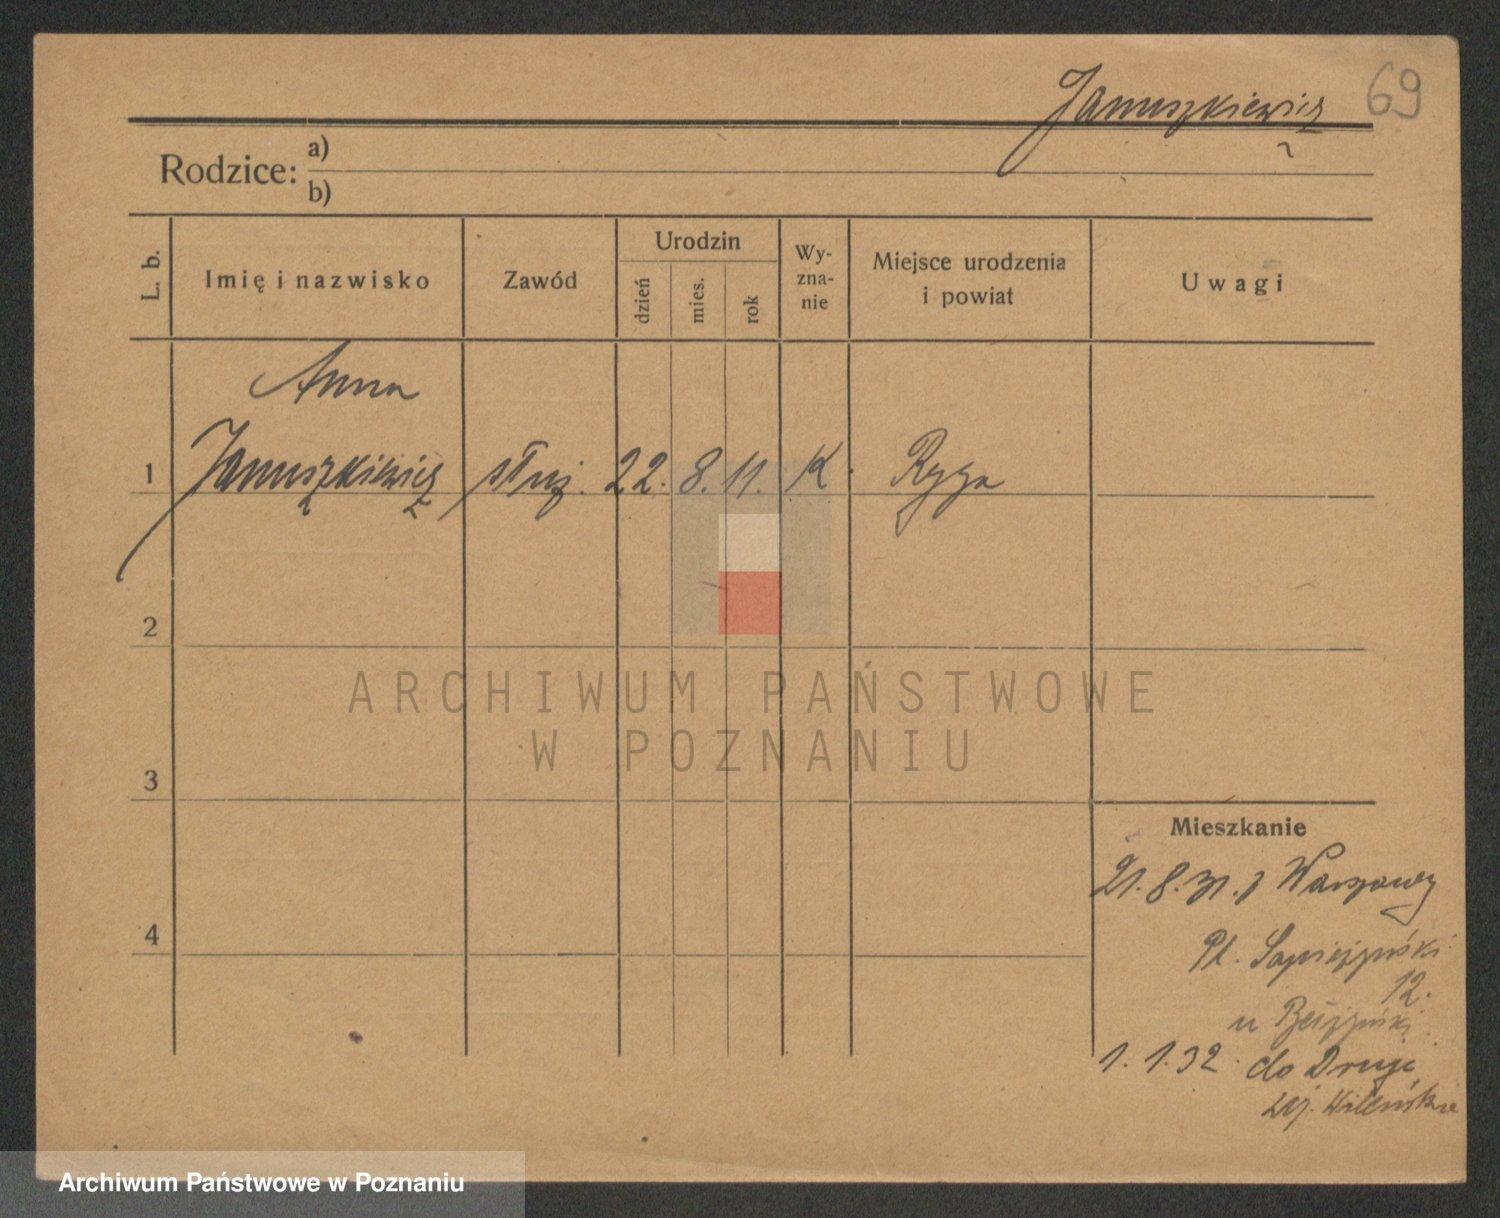 Januszkiewicz 69
Rodzice: a)
b)
L. b. Imię i nazwisko Zawód Urodzin dzień mies. rok Wy-zna-nie Miejsce urodzenia i powiat Uwagi
Anna
1 Januszkiewicz służ. 22. 8. 11. K. Ryga
2
ARCHIWUM PAŃSTWOWE
W POZNANIU
3
Mieszkanie
21. 8. 31. z Warszawy
4
Pl. Sapieżyński
12.
u
1. 1. 32. do Druji
woj. Wileńskie
Archiwum Państwowe w Poznaniu